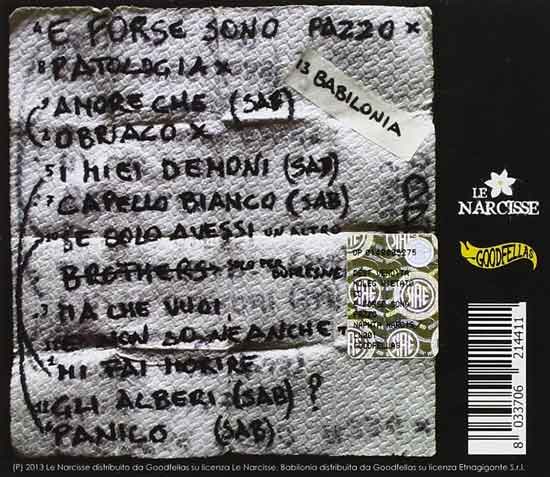 4 E FORSE SONO PAZZO X
8 PATOLOGIA X
13 BABILONIA
9 AMORE CHE (SAB)
2 OBRIACO X
5 I MIEI DEMONI (SAB)
7 CAPELLO BIANCO (SAB)
SE SOLO AVESSI UN ALTRO
BROTHERS
MA CHE VUOI,
NON SO NEANCHE
MI FAI MORIRE
GLI ALBERI (SAB) ?
PANICO (SAB)
SIAE
GOODFELLAS
LE
NARCISSE
GOODFELLAS
8 033706 214411
(P) 2013 Le Narcisse distribuito da Goodfellas su licenza Le Narcisse. Babilonia distribuita da Goodfellas su licenza Etnagigante S.r.l.